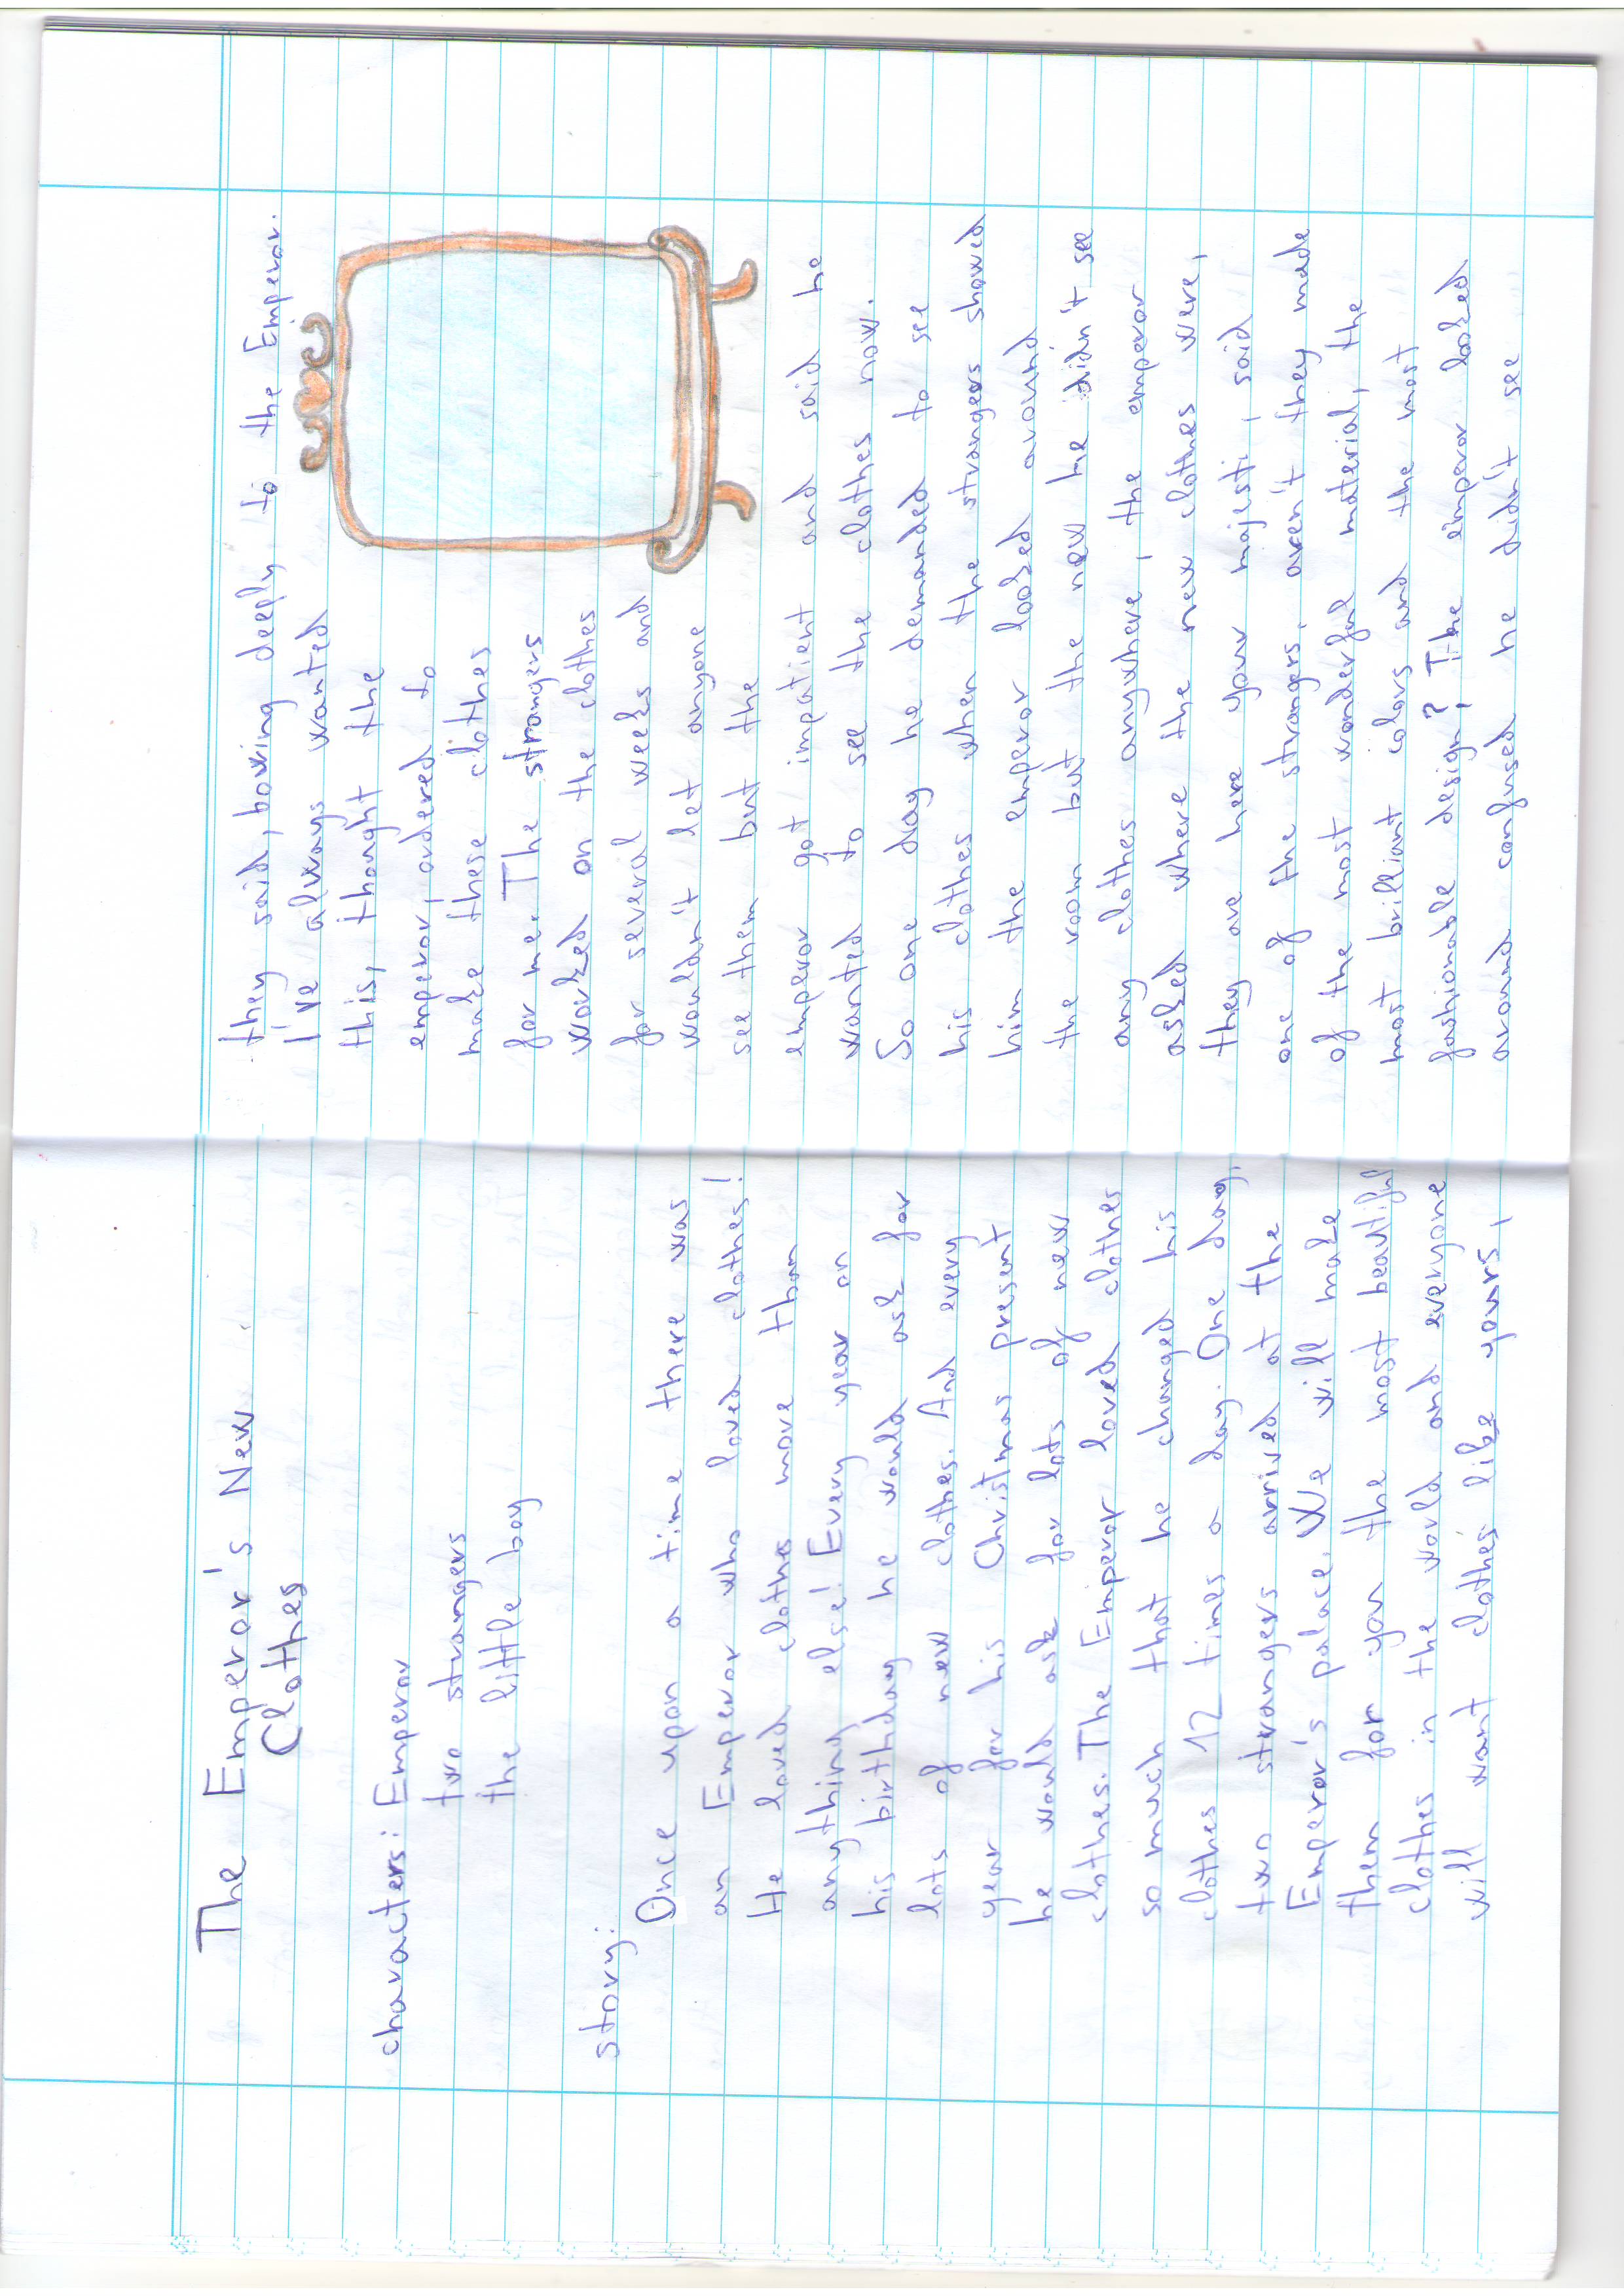 The Emperor's New
Clothes
characters: Emperor
two strangers
the little boy
story:
Once upon a time there was
an Emperor who loved clothes!
He loved clothes more than
anything else! Every year on
his birthday he would ask for
lots of new clothes. And every
year for his Christmas present
he would ask for lots of new
clothes. The Emperor loved clothes
so much that he changed his
clothes 12 times a day. One day,
two strangers arrived at the
Emperor's palace. We will make
them for you the most beautiful
clothes in the world and everyone
will want clothes like yours,
they said, bowing deeply to the Emperor.
I've always wanted
this, thought the
emperor, ordered to
make these clothes
for me. The strangers
worked on the clothes
for several weeks and
wouldn't let anyone
see them but the
emperor got impatient and said he
wanted to see the clothes now.
So one day he demanded to see
his clothes when the strangers showed
him the emperor looked around
the room but the new he didn't see
any clothes anywhere, the emperor
asked where the new clothes were,
they are here your majesti, said
one of the strangers, aren't they made
of the most wonderful material, the
most brilliant colors and the most
fashionable design? The emperor looked
around confused he didn't see